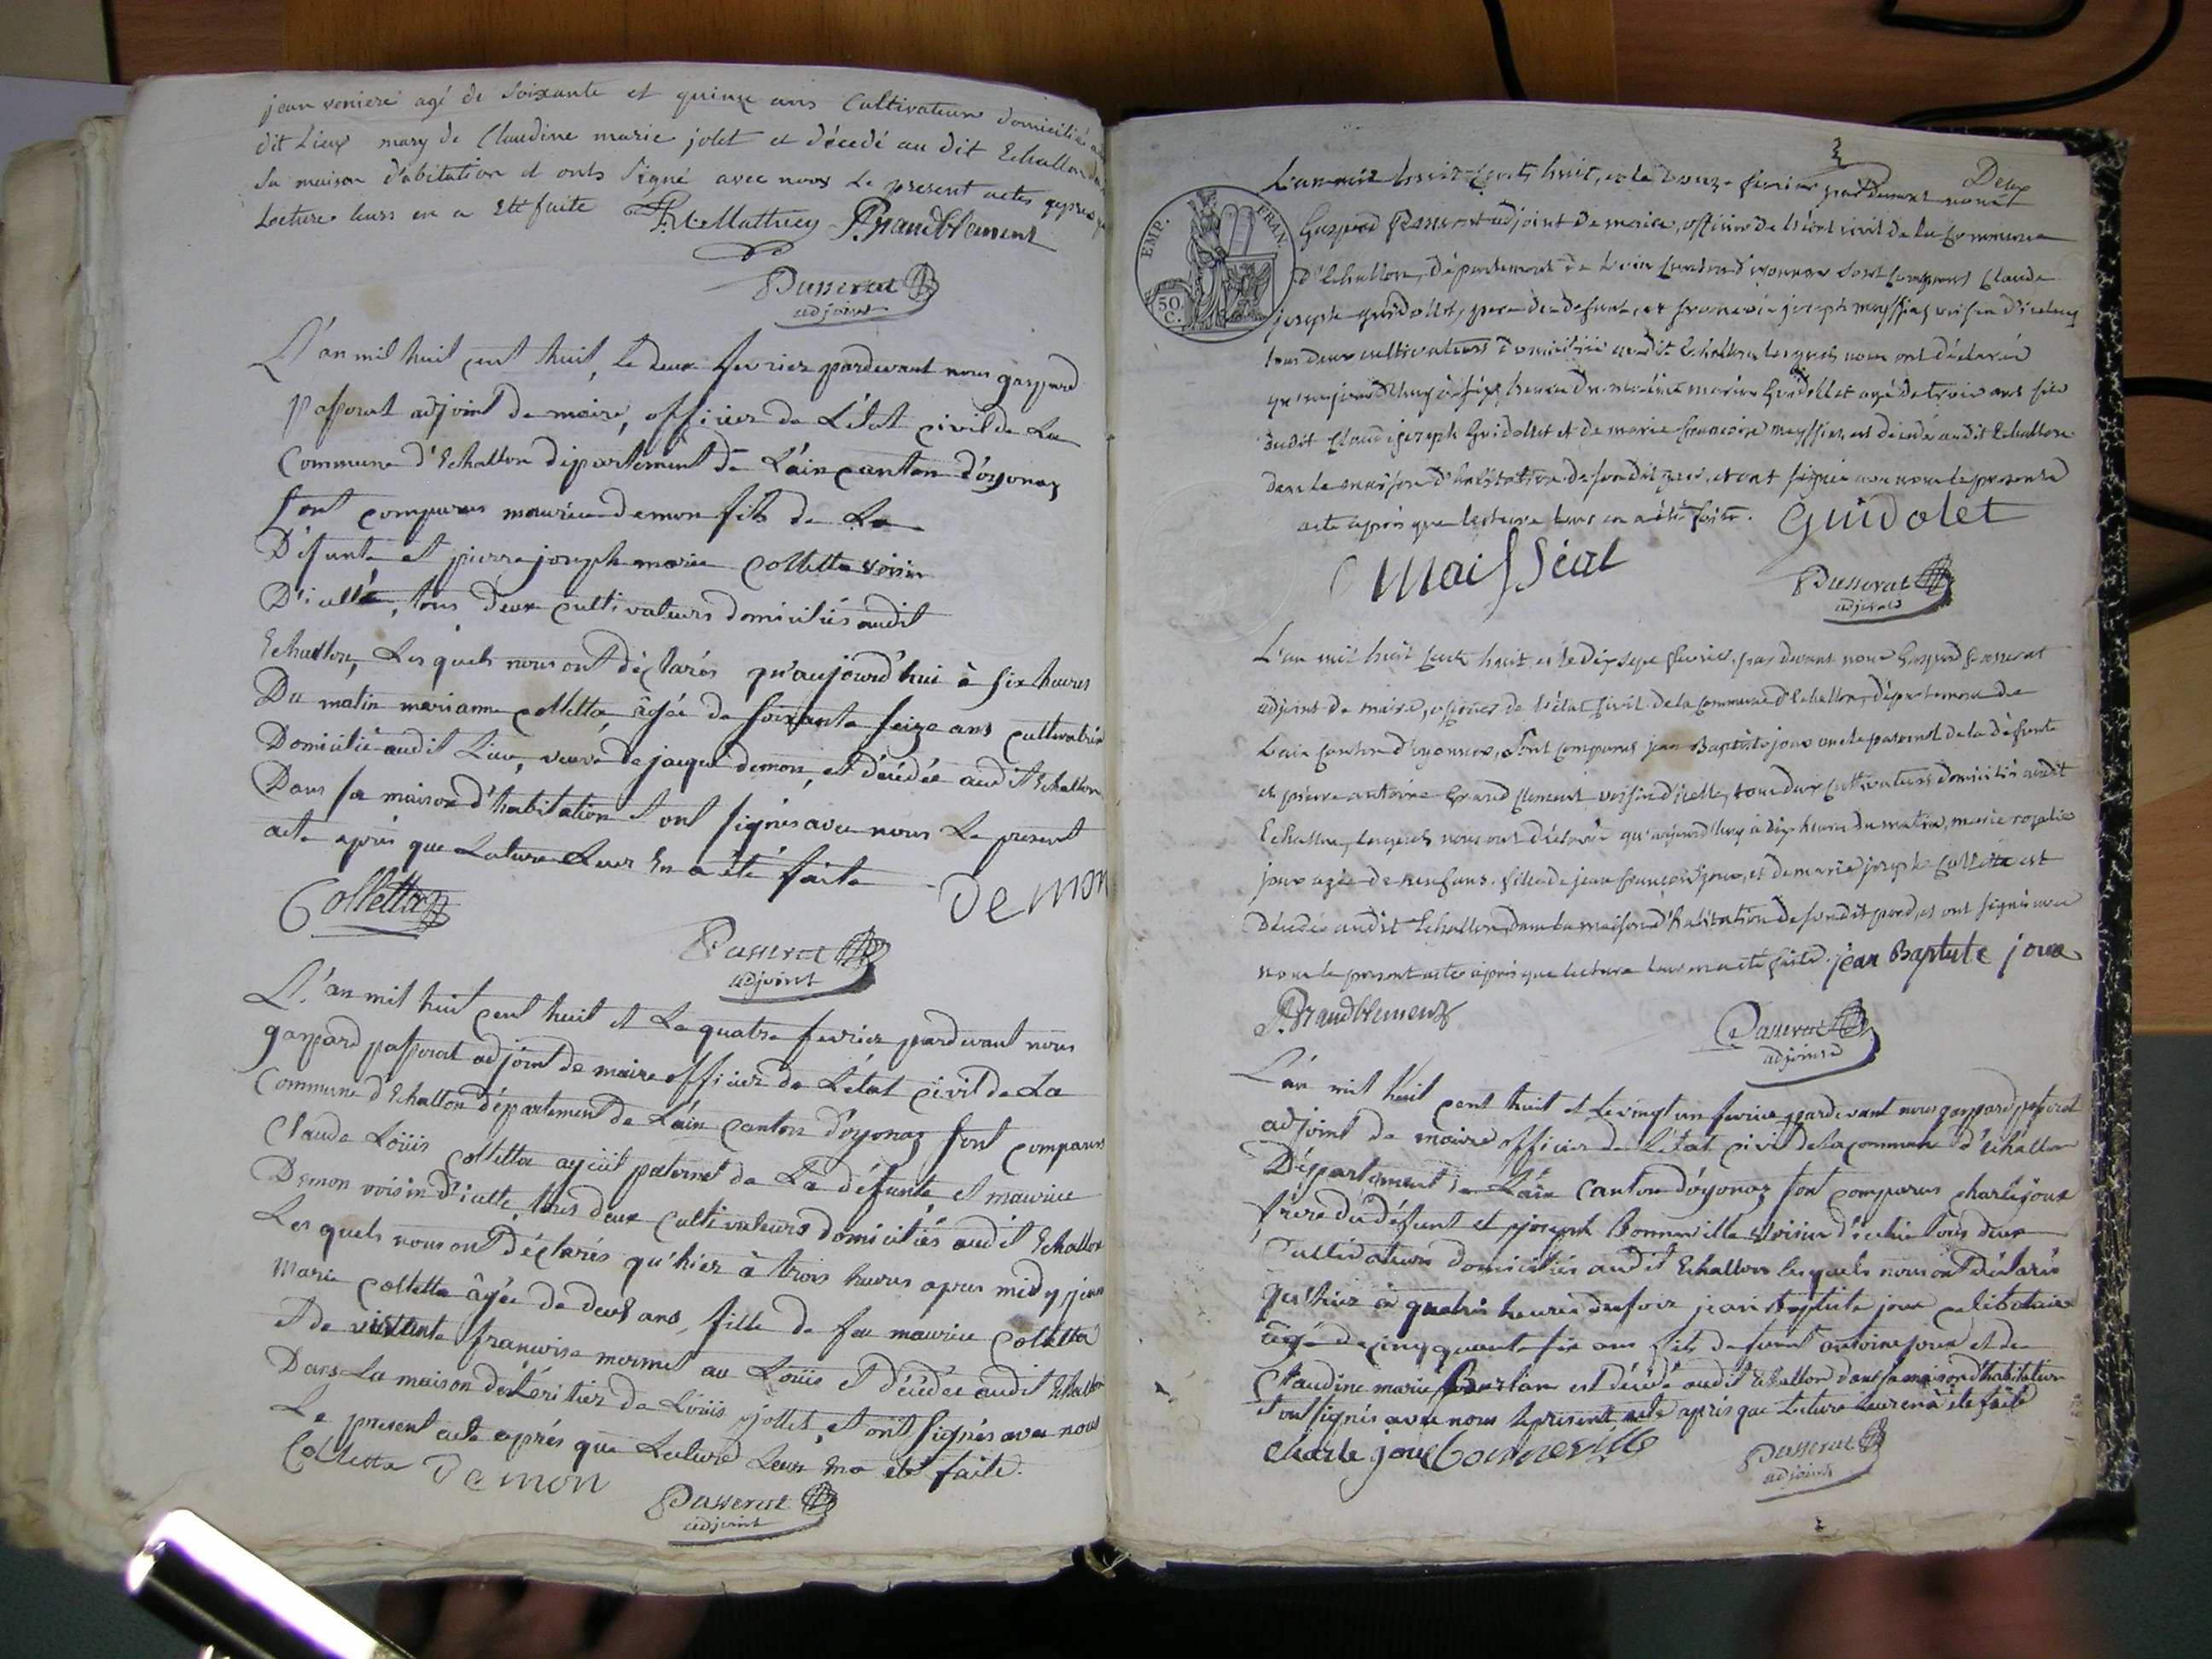 jean veniere agé de Soixante et quinze ans Cultivateur domicilié au
dit Lieux mary de Claudine marie jolet et décedé au dit Echallon dans
Sa maison d'abitation et onts Signé avec nous Le present actes apres que
Lecture leurs en a Etté faite P. M Matthieu P. grandclement
Passerat
adjoint
L'an mil huit cent huit, Le deux fevrier pardevant nous gaspard
Passerat adjoint de maire, officier de L'état civil de La
Commune d'Echallon département de L'ain canton d'oyonaz
Sont comparus maurice demon fils de La
Défunte et pierre joseph marie Colletta voisin
D'icelle, tous deux cultivateurs domiciliés audit
Echallon, Les quels nous ont déclarés qu'aujourd'hui à six heures
Du matin marianne Colletta âgée de soixante seize ans cultivatrice
Domicilié audit Lieu, veuve de jacque demon, est décédée audit Echallon
Dans sa maison d'habitation et ont signés avec nous Le present
acte après que Lecture Leur En a été faite
Colletta demon
Passerat
adjoint
L'an mil huit cent huit et Le quatre fevrier pardevant nous
gaspard passerat adjoint de maire officier de L'état civil de La
Commune d'Echallon département de L'ain canton d'oyonaz sont comparus
Claude Loüis Colletta ayeüil paternel de La défunte, et maurice
Demon voisin d'icelle, tous deux cultivateurs domiciliés audit Echallon
Les quels nous ont déclarés qu'hier à trois heures apres midy jean
Marie Colletta âgée de deux ans, fille de feu maurice Colletta
et de françoise mermet au Loüis et décédée audit Echallon
Dans La maison de Loüis jollet, et ont signés avec nous
Le present acte après que Lecture Leur En a été faite.
Colletta Demon
Passerat
adjoint
Deux
L'an mil huit cents huit, et le douze fevrier par devant nous
Gaspard Passerat adjoint de maire, officier de l'état civil de la Commune
EMP. FRAN.
50 C.
d'Echallon, département de l'ain Canton d'oyonnax Sont Comparus Claude
joseph guidollet, pere du defunt, et francois joseph voisin d'icelui
tous deux cultivateurs domiciliés audit Echallon, lesquels nous ont déclarés
qu'aujourd'huy à six heures du matin marie Guidollet agé de trois ans fils
dudit Claude joseph Guidollet et de marie francoise est décédé audit Echallon
dans la maison d'habitation de sondit pere, et ont signés avec nous le present
acte après que lecture leur en a été faite. Guidolet
Maisséiat
Passerat
adjoint
L'an mil huit Cent huit et le dix sept fevrier, par devant nous Gaspard Passerat
adjoint de maire, officier de l'état Civil de la commune d'Echallon, département de
L'ain Canton d'oyonnax, Sont Comparus jean Baptiste joux oncle paternel de la défunte
et pierre antoine Grand Clement voisin d'icelle, tous deux Cultivateurs domiciliés audit
Echallon, lesquels nous ont déclarés qu'aujourd'huy à dix heures du matin, marie rozalie
joux agée de neuf ans, fille de jean françois joux, et de marie joseph Colletta est
Décédée audit Echallon dans la maison d'habitation de sondit pere, et ont signés avec
nous le present acte après que lecture leur en a été faite. jean Baptiste joux
P. Grandclement
Passerat
adjoint
L'an mil huit cent huit et le vingt un fevrier pardevant nous gaspard passerat
adjoint de maire officier de l'état civil de la commune d'Echallon
Département de L'ain Canton d'oyonaz sont comparus charle joux
frere du défunt et joseph Bonneville voisin d'icelui tous deux
Cultivateurs domiciliés audit Echallon lesquels nous ont déclarés
qu'hier à quatre heures du soir jean Baptiste joux celibataire
âgé de cinquante six ans fils defunt antoine joux et de
Claudine marie est décédé audit Echallon dans sa maison d'habitation
et ont signés avec nous le present acte après que Lecture leur en a été faite
Charle joux Bonneville
Passerat
adjoint